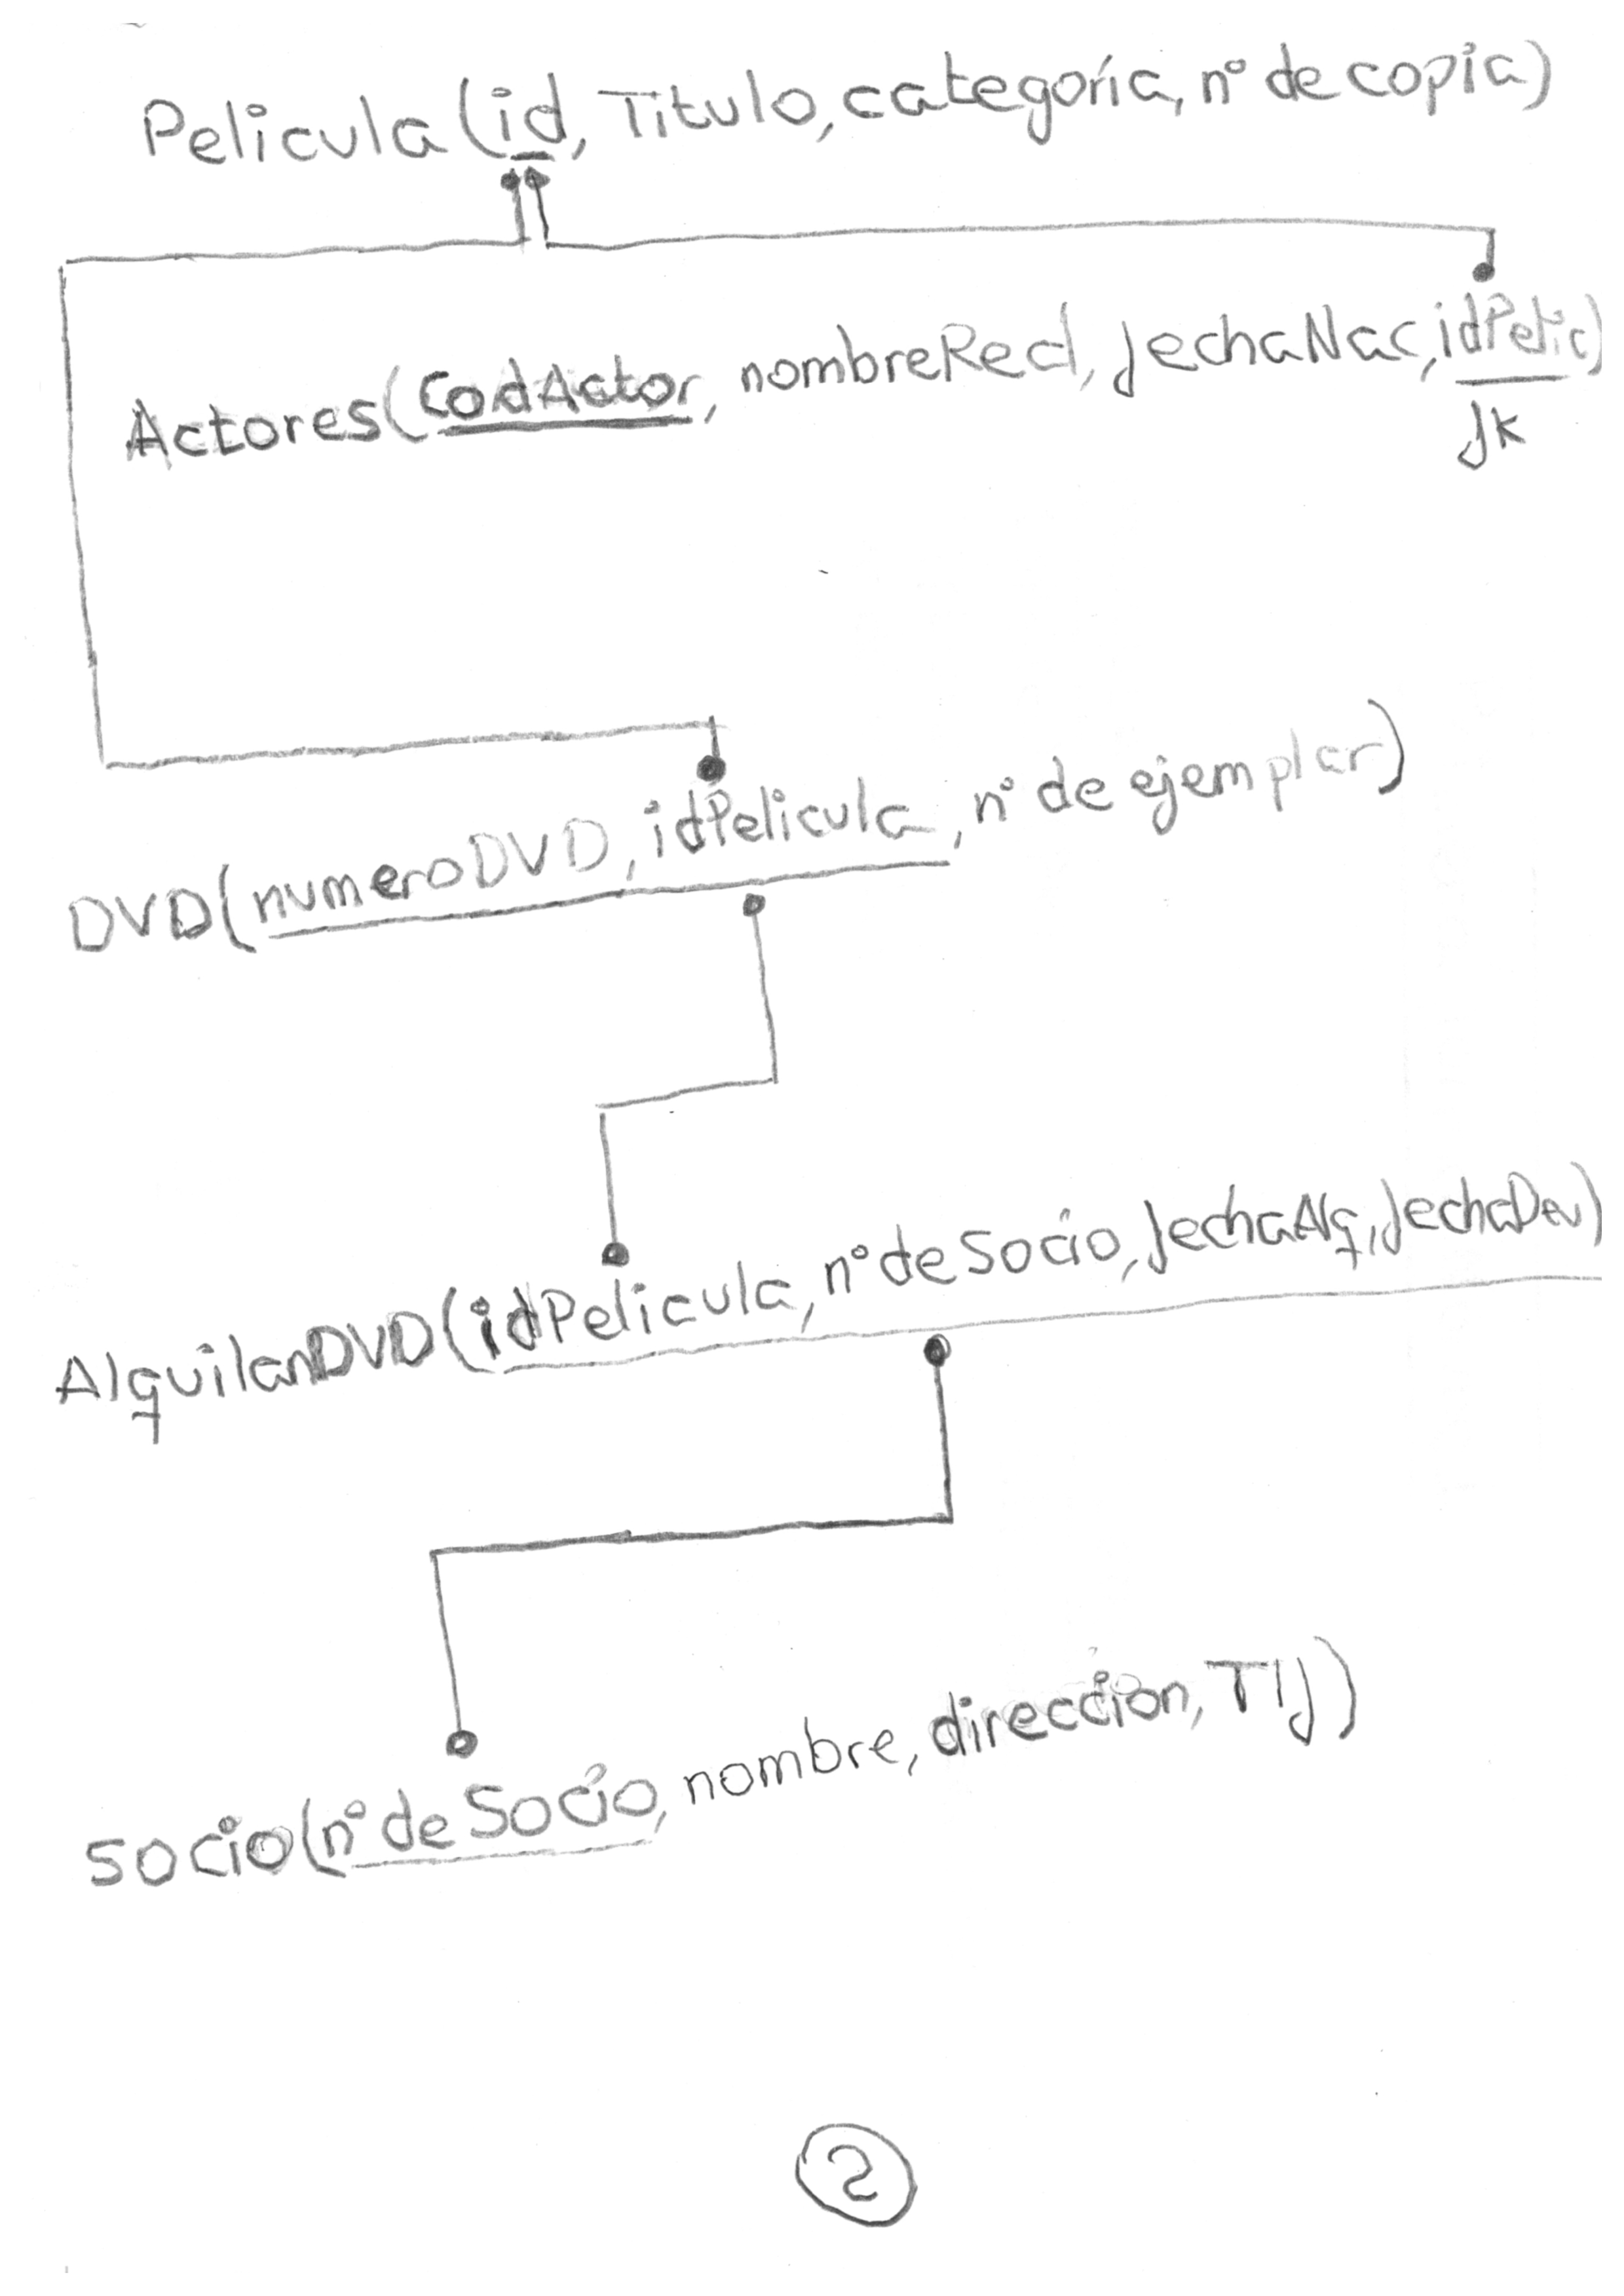 Pelicula (id, Titulo, categoría, nº de copia)
Actores (CodActor, nombreReal, fechaNac, idPelic)
fk
DVD (numeroDVD, idPelicula, nº de ejemplar)
AlquilanDVD (idPelicula, nº de Socio, fechaAlq, fechaDev)
Socio (nº de Socio, nombre, dirección, Tlf)
2